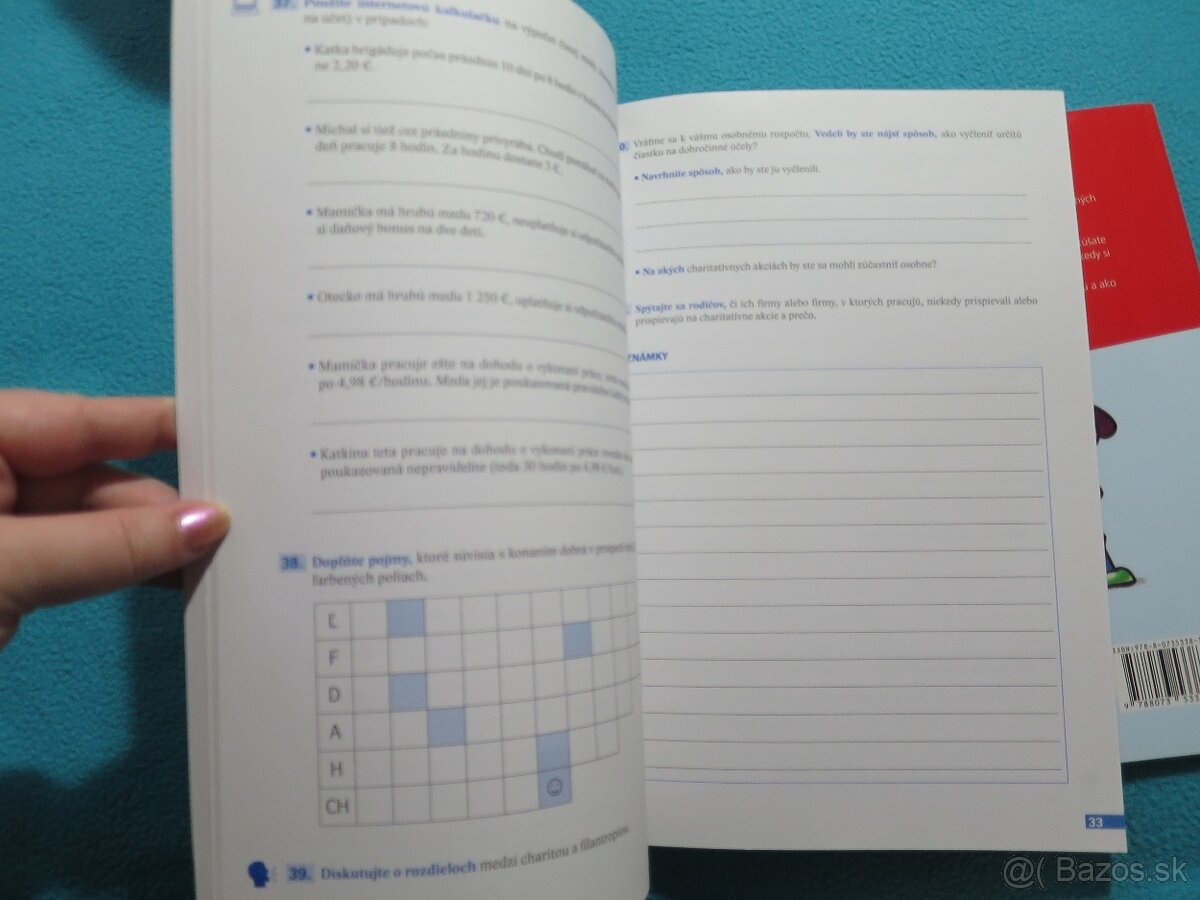 37. Použite internetovú kalkulačku na výpočet čistej
na účet) v prípadoch:
• Katka brigáduje počas prázdnin 16 dní po 8 hodín
ne 2,20 €.
• Michal si tiež cez prázdniny privyrába. Chodí
deň pracuje 8 hodín. Za hodinu dostane 3 €.
• Mamička má hrubú mzdu 720 €, neuplatňuje si
si daňový bonus na dve deti.
• Otecko má hrubú mzdu 1 250 €, uplatňuje si
• Mamička pracuje ešte na dohodu o vykonaní práce,
po 4,98 €/hodinu. Mzda jej je poukazovaná
• Katkina teta pracuje na dohodu o vykonaní práce
poukazovaná nepravidelne (teda 30 hodín po 4,98
38. Doplňte pojmy, ktoré súvisia s konaním dobra v prospech
farbených poliach.
Ľ
F
D
A
H
CH
39. Diskutujte o rozdieloch medzi charitou a filantropiou.
0. Vráťme sa k vášmu osobnému rozpočtu. Vedeli by ste nájsť spôsob, ako vyčleniť určitú
čiastku na dobročinné účely?
• Navrhnite spôsob, ako by ste ju vyčlenili.
• Na akých charitatívnych akciách by ste sa mohli zúčastniť osobne?
Spýtajte sa rodičov, či ich firmy alebo firmy, v ktorých pracujú, niekedy prispievali alebo
prispievajú na charitatívne akcie a prečo.
ZNÁMKY
33
ných
úšate
kedy si
u a ako
ISBN: 978-8-0735338-
9 788073 533
@( Bazos.sk